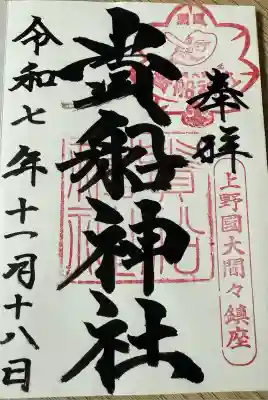 奉拝
上野國大間々鎮座
貴船神社
令和七年十一月十八日